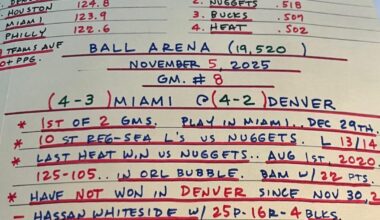 DENVER 124.8
HOUSTON 123.9
MIAMI
PHILLY 122.6
TEAMS AVE
+ PPG.
2. NUGGETS .518
3. BUCKS .509
4. HEAT .502
BALL ARENA (19,520)
NOVEMBER 5, 2025
GM. # 8
(4-3) MIAMI @ (4-2) DENVER
* 1ST OF 2 GMS. PLAY IN MIAMI.. DEC 29TH.
* 10 ST REG-SEA L'S VS NUGGETS. L 13/14
* LAST HEAT WIN VS NUGGETS.. AUG 1ST, 2020
125-105.. IN ORL BUBBLE. BAM W/ 22 PTS.
* HAVE NOT WON IN DENVER SINCE NOV 30, 2
- HASSAN WHITESIDE W/ 25P-16R-4 BLKS.